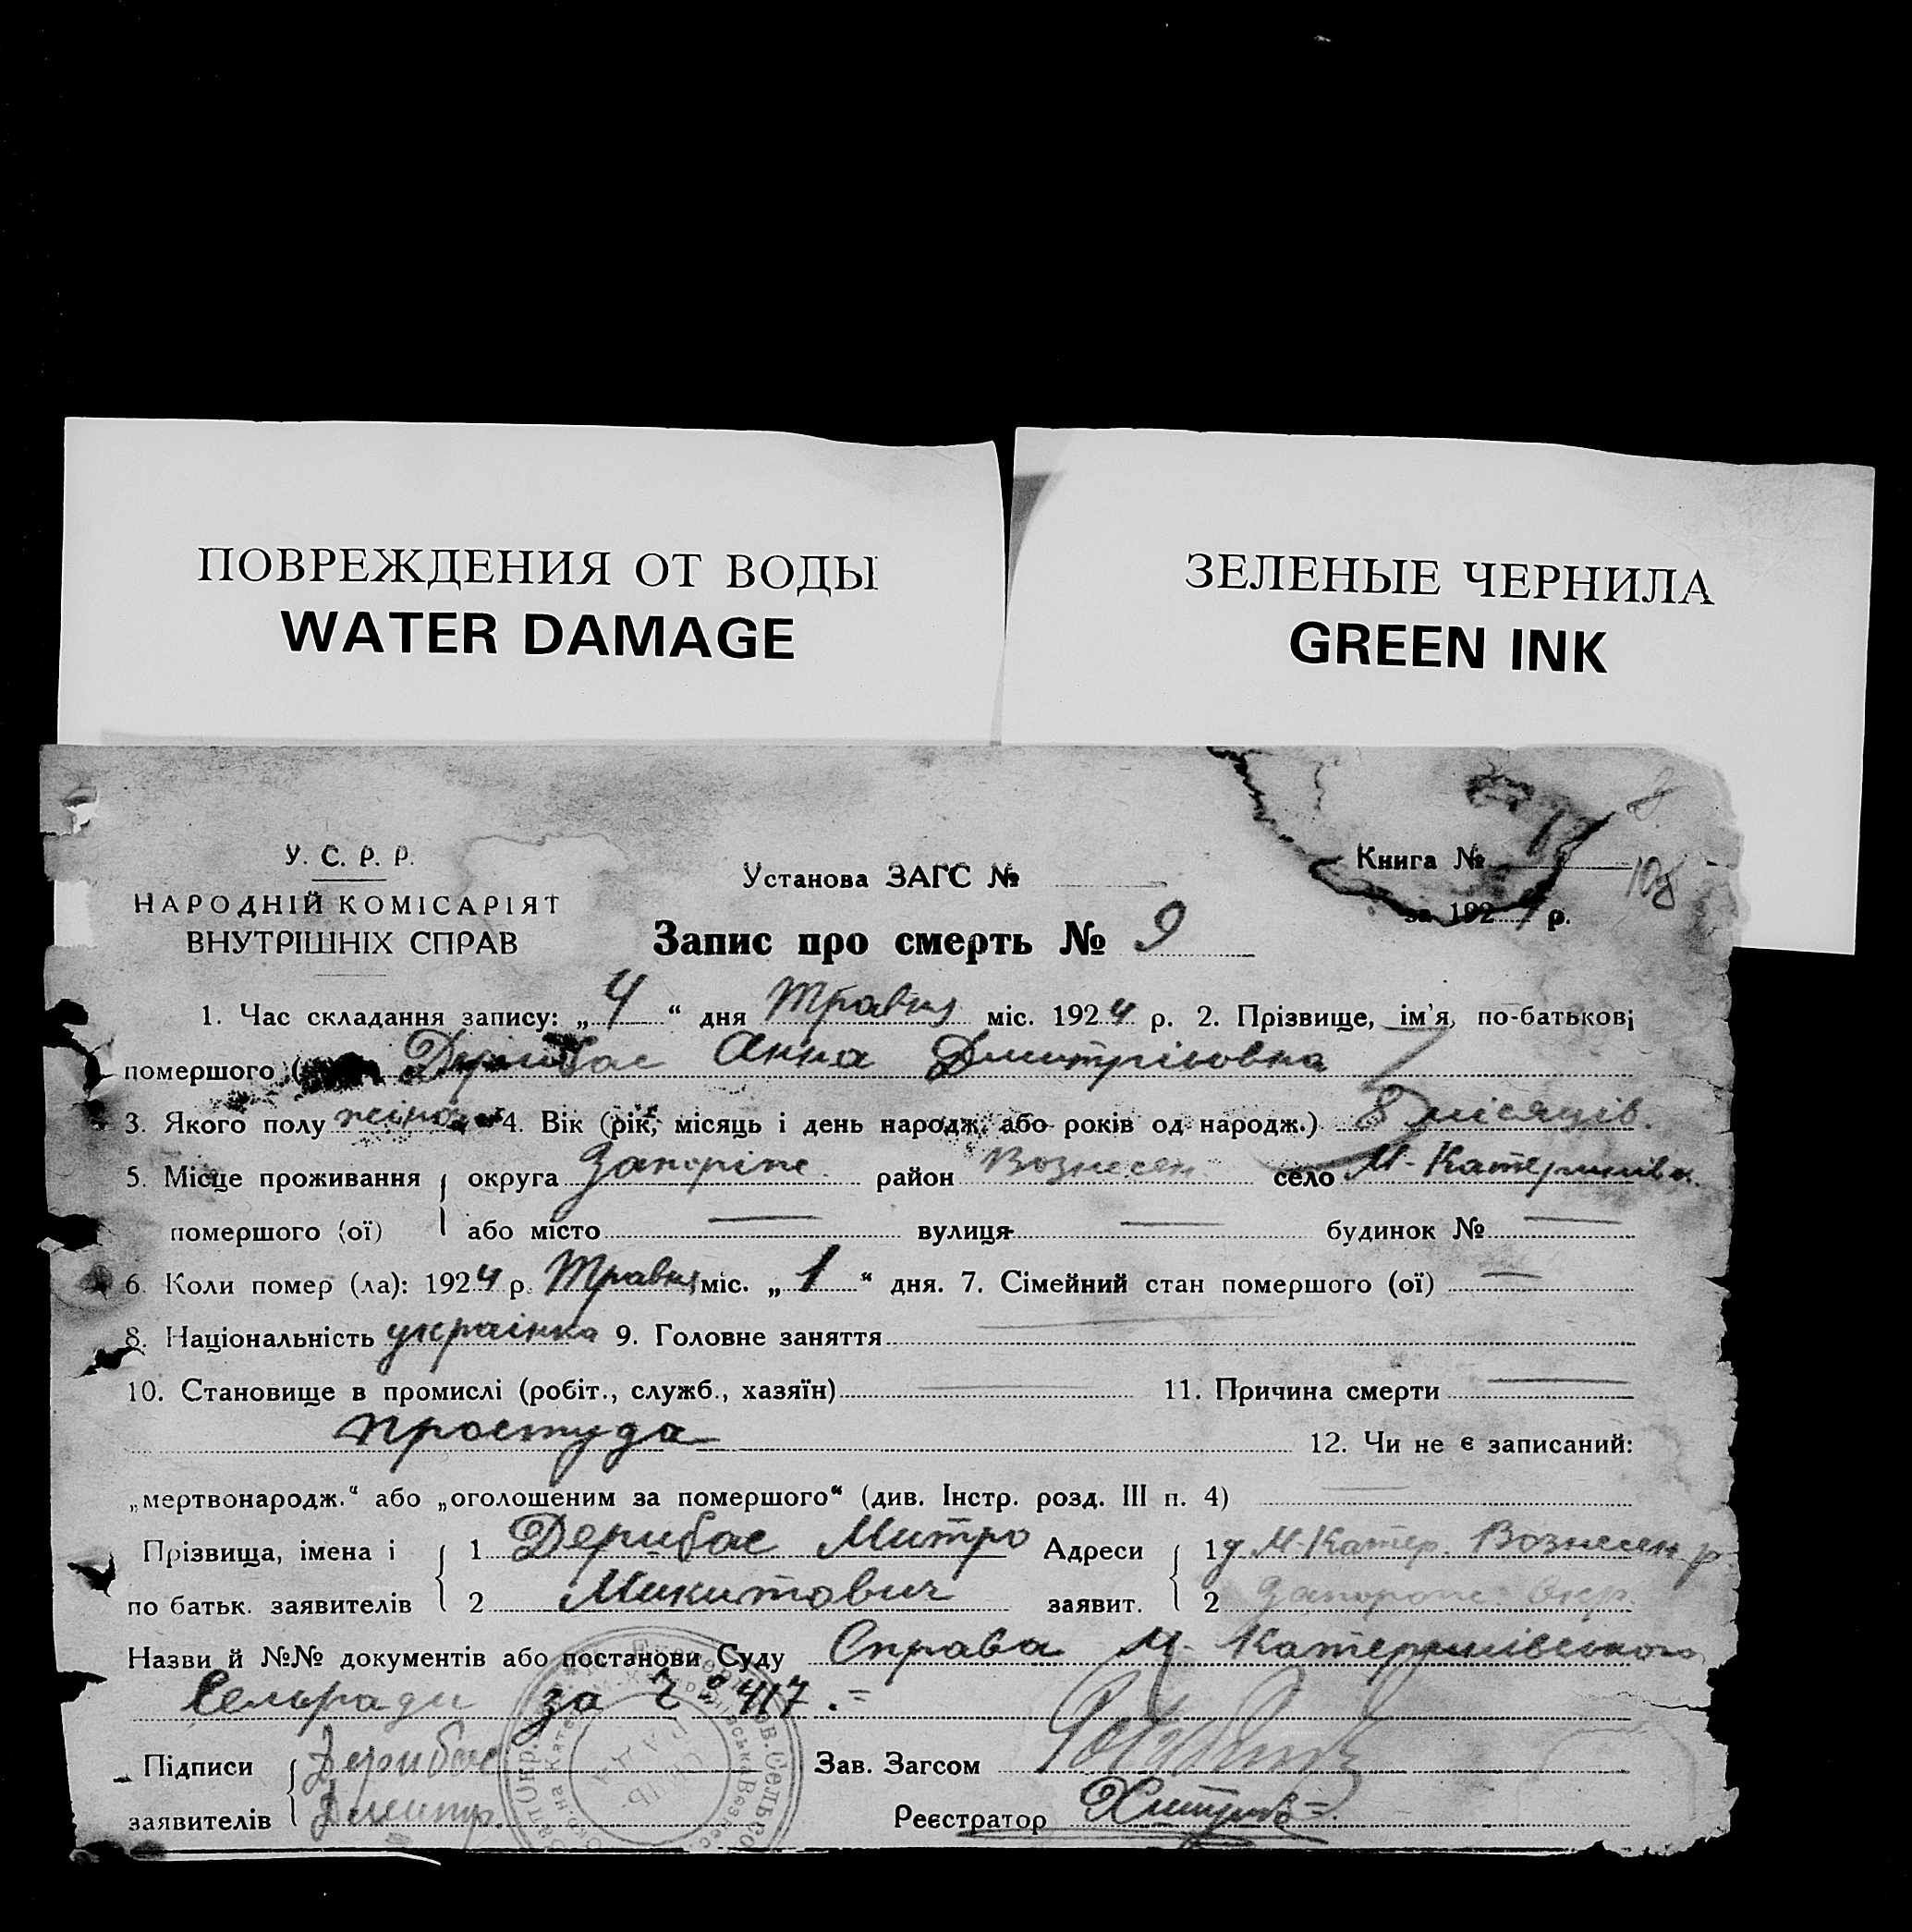 ПОВРЕЖДЕНИЯ ОТ ВОДЫ
WATER DAMAGE
ЗЕЛЕНЫЕ ЧЕРНИЛА
GREEN INK
8
У. С. Р. Р.
НАРОДНІЙ КОМІСАРІЯТ
ВНУТРІШНІХ СПРАВ
Установа ЗАГС №
Книга №
108
за 192 р.
Запис про смерть № 9
1. Час складання запису: „4“ дня Травня міс. 1924 р. 2. Прізвище, ім'я, по-батькові
помершого ( Дерибас Анна Дмитрівовна
3. Якого полу жіноч 4. Вік (рік, місяць і день народж. або років од народж.) 8 місяців.
5. Місце проживання округа Запоріж. район Вознесен село М-Катеринівка
помершого (ої) або місто вулиця будинок №
6. Коли помер (ла): 1924 р. Травня міс. „1“ дня. 7. Сімейний стан помершого (ої)
8. Національність українка 9. Головне заняття
10. Становище в промислі (робіт., служб., хазяїн) 11. Причина смерти
простуда 12. Чи не є записаний:
„мертвонародж.“ або „оголошеним за помершого“ (див. Інстр. розд. III п. 4)
Прізвища, імена і 1 Дерибас Митро Адреси 1 М-Катер. Вознесен р.
по батьк. заявителів 2 Микитович заявит. 2 Запорож. Окр.
Назви й №№ документів або постанови Суду Справа М-Катеринівського
Сельради за 417.=
Підписи Дерибас Зав. Загсом
заявителів Дмитр. Реєстратор